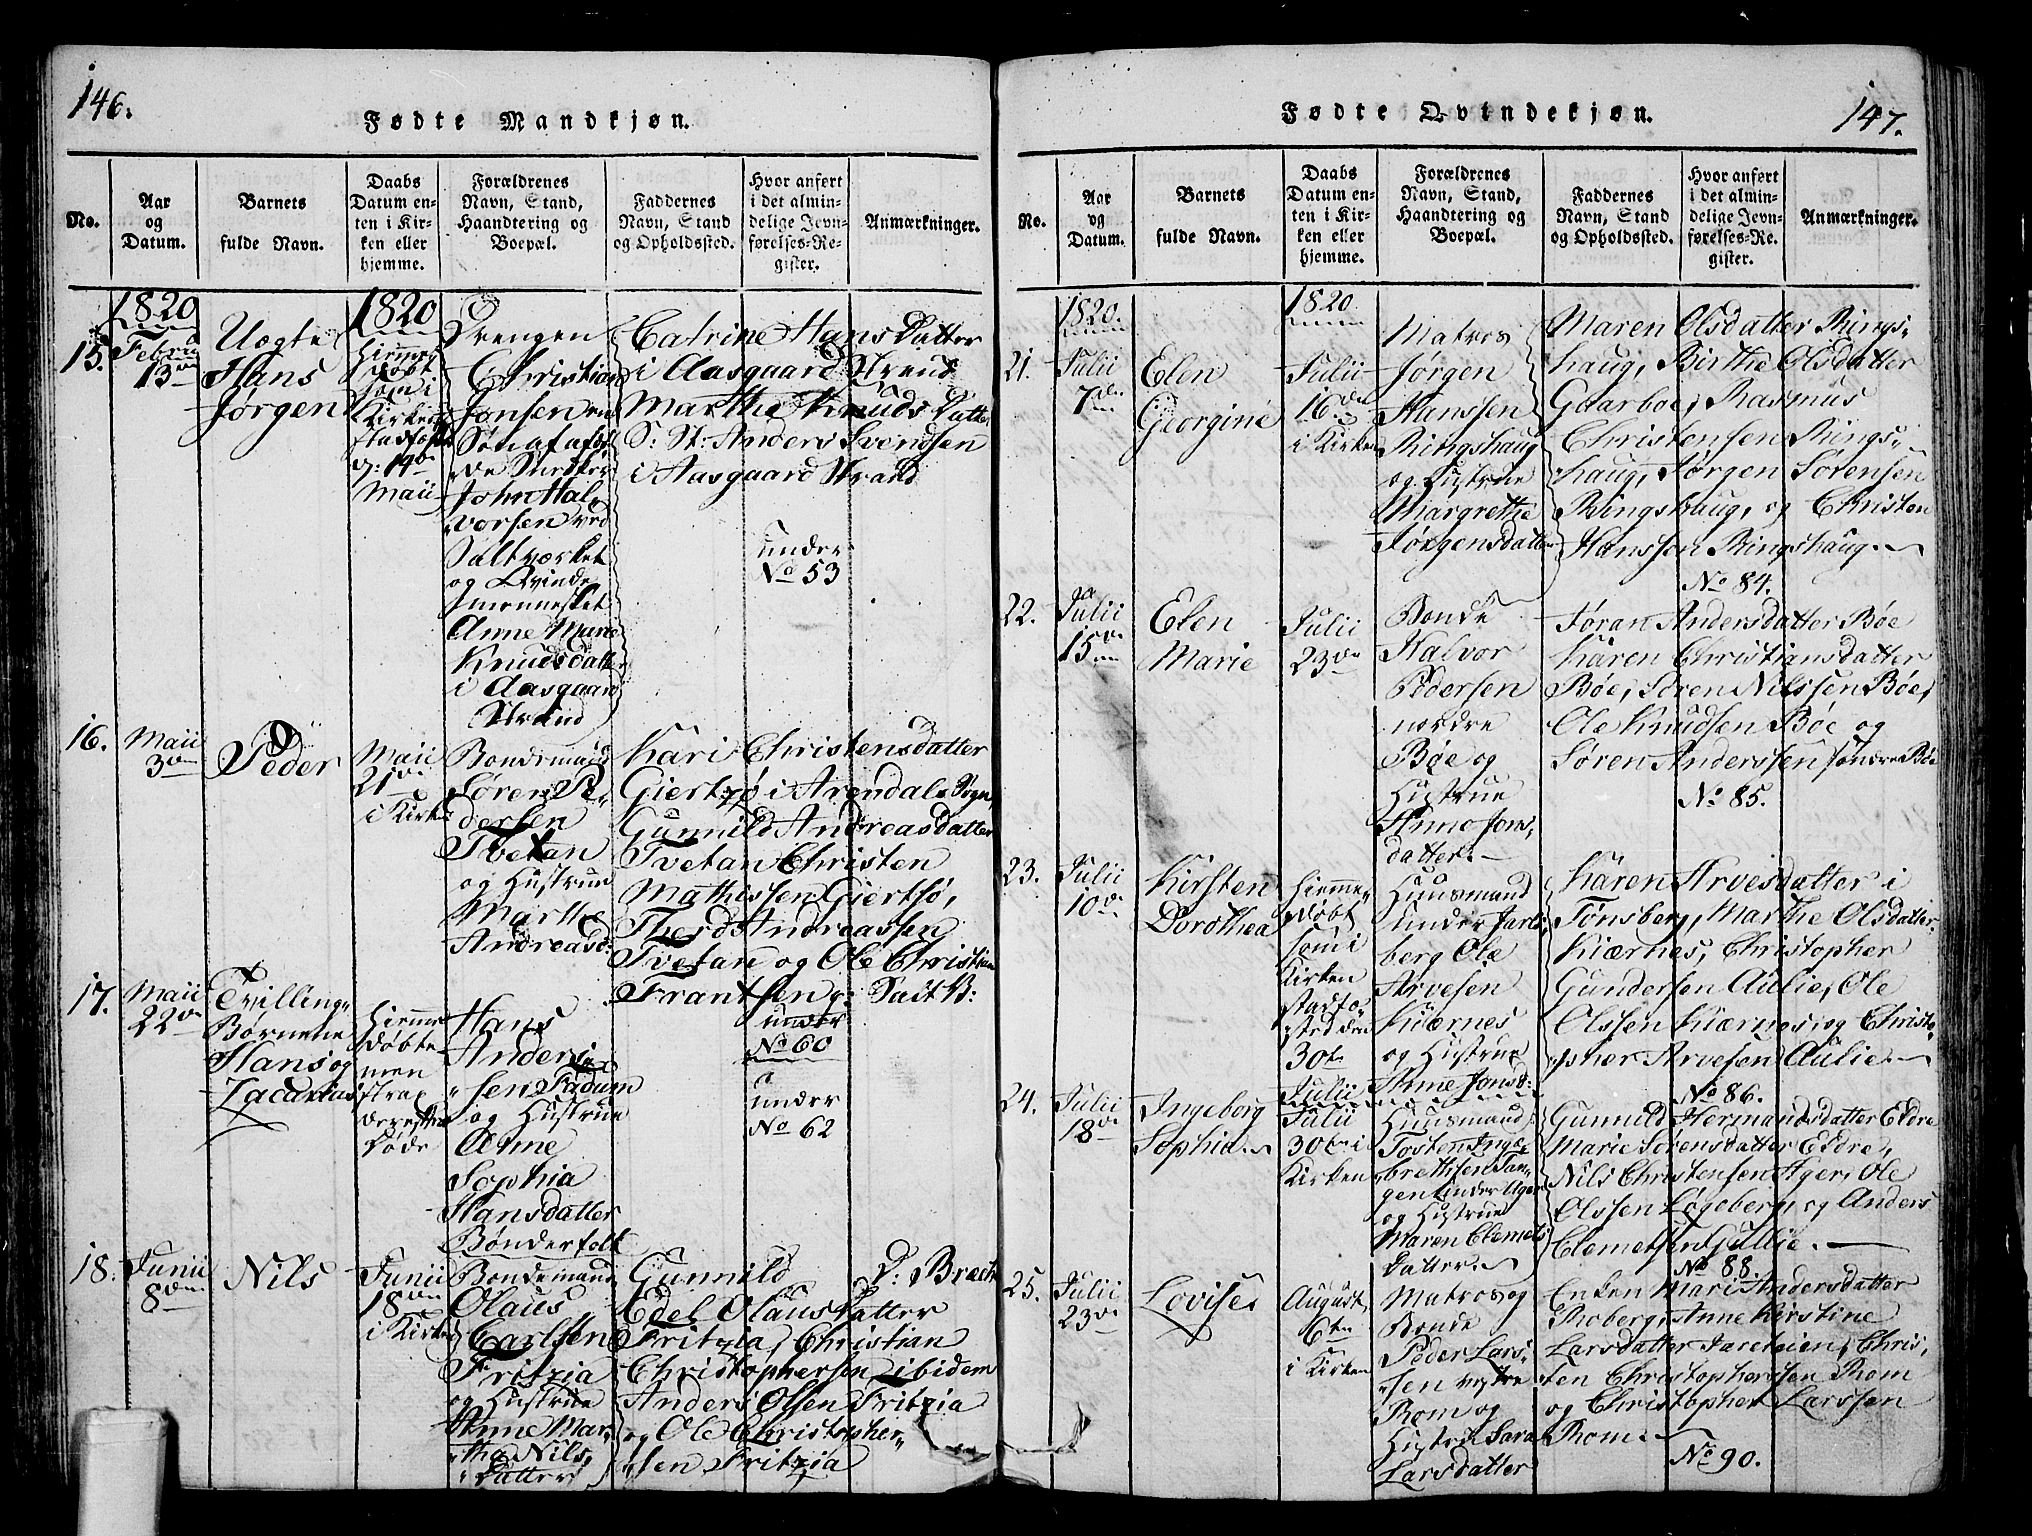 146.
Fødte Mandkjøn.
No.
Aar
og
Datum.
Barnets
fulde Navn.
Daabs
Datum en-
ten i Kir-
ken eller
hjemme.
Forældrenes
Navn, Stand,
Haandtering og
Boepæl.
Faddernes
Navn, Stand
og Opholdssted.
Hvor anført
i det almin-
delige Jevn-
førelses-Re-
gister.
Anmærkninger.
15.
1820
Febru
13
Uægte
Hans
Jørgen
1820
Hiemme
døbt
som i
Kirken
stadfæst
d: 14de
Maii
Drengen
Christian
Jonsen
John Hal,
vorsen ved
Saltværket
og Qvinde
mennesket
Anne Marie
Knudsdatter
i Aasgaard
Strand
Catrine Hans Datter
i Aasgaard Strand
Marthe Knuds Datter
S: St: Anders Svendsen
i Aasgaard Strand
under
No 53
16.
Maii
3de
Peder
Maii
21de
i Kirken
Bondemand
Søren Pe,
dersen
Tvetan
og Hustrue
Marthe
Andreasd:
Kari Christensdatter
Giertsø i Arendals Sogn
Gunnild Andreasdatter
Tvetan Christen
Mathissen Giertsø,
Therd Andreassen
Tvetan og Ole Christian
Frantsen Salt V:
under
No 60
17.
Maii
22de
Tvilling,
Børnene
Hans og
Zacarias
Hiemme
døbte
men
strax
derefter
døde
Hans
Anders
sen Fadum
og Hustrue
Anne
Sophia
Hansdatter
Bønderfolk
under
No 62
18.
Junii
8de
Nils
Junii
18de
i Kirken
Bondemand
Olaus
Carlsen
Fritzia
og Hustrue
Anne Mar,
tha Nils,
Datter
Gunnild D: Bræch
Edel Olaus Datter
Fritzia, Christian
Christophersen ibidem
Anders Olsen Fritzia
og Ole Christopher,
sen Fritzia
147.
Fødte Qvindekjøn.
No.
Aar
og
Datum.
Barnets
fulde Navn.
Daabs
Datum en-
ten i Kir-
ken eller
hjemme.
Forældrenes
Navn, Stand,
Haandtering og
Boepæl.
Faddernes
Navn, Stand
og Opholdssted.
Hvor anført
i det almin-
delige Jevn-
førelses-Re-
gister.
Anmærkninger.
21.
1820.
Julii
7de
Elen
Georgine
1820
Julii
16de
i Kirken
Matros
Jørgen
Hanssen
Ringshaug
og Hustrue
Margrethe
Jørgensdatter
Maren Olsdatter Rings,
haug, Birthe Olsdatter
Gaarboe, Rasmus
Christensen Rings,
haug, Jørgen Sørensen
Ringshaug, og Christen
Hanssen Ringshaug.
No 84.
22.
Julii
15de
Elen
Marie
Julii
23de
Bonde
Halvor
Pedersen
nordre
Bøe og
Hustrue
Anne Jons,
datter.
Jøran Andersdatter Bøe
Karen Christiansdatter
Bøe, Søren Nilssen Bøe,
Ole Knudsen Bøe og
Søren Anderssen søndre Bøe
No 85.
23.
Julii
10de
Kirsten
Dorothea
Hiemme,
døbt
som i
Kirken
stadfæ,
sted den
30te
Julii
Huusmand
under Jarls,
berg Ole
Arvesen
Kiærnes
og Hustrue
Anne Jonsd:
Karen Arvesdatter i
Tønsberg, Marthe Olsdatter
Kiærnes, Christopher
Gundersen Aulie, Ole
Olssen Kiærnes og Christo,
pher Arvesen Aulie.
No 86.
24.
Julii
18de
Ingeborg
Sophia.
Julii
30te i
Kirken
Huusmand
Tosten Inge,
brethsen Tan,
gen under Ager
og Hustrue
Maren Clemets
Datter.
Gunnild Hermandsdatter Eldre
Marie Sørensdatter Eldre,
Nils Christensen Ager, Ole
Olssen Løgeberg, og Anders
Clemetsen Gullie.
No 88.
25.
Julii
23de
Lovise.
August,
6te
i Kirken
Matros og
Bonde
Peder Lars,
sen vestre
Rom og
Hustrue Sara
Larsdatter
Enken Mari Andersdatter
Roberg, Anne Kirstine
Larsdatter Jareteien, Chris,
ten Christopherssen Rom
og Christopher Larssen
Rom.
No 90.